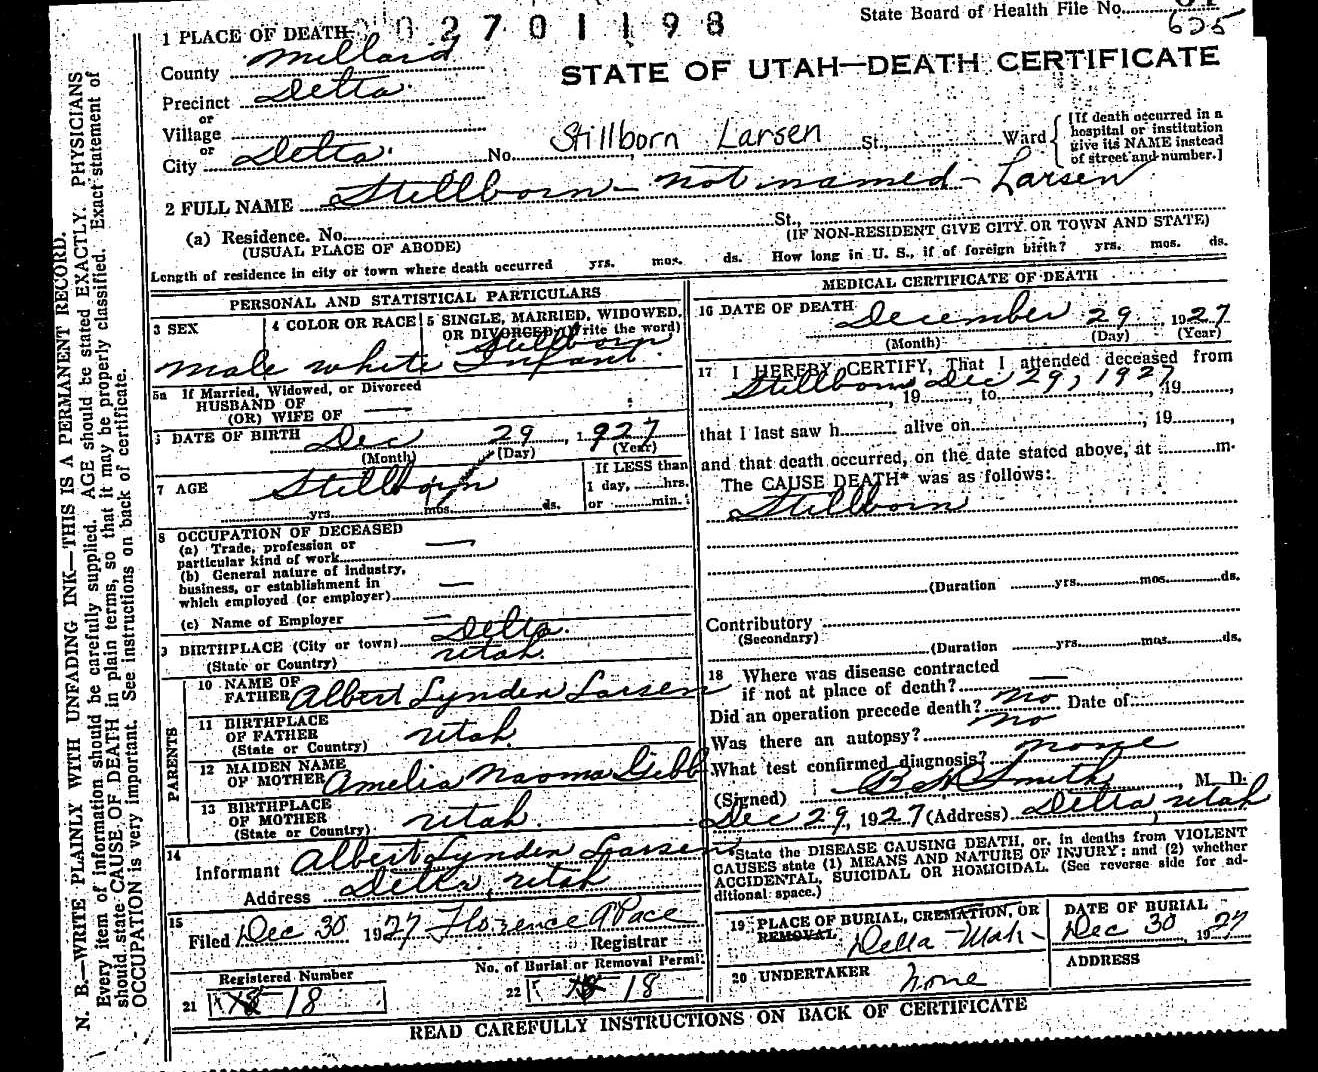 02701198
State Board of Health File No.
625
1 PLACE OF DEATH
County Millard
STATE OF UTAH—DEATH CERTIFICATE
Precinct Delta
or
Village
or
City Delta. No. Stillborn Larsen St., Ward
[If death occurred in a hospital or institution give its NAME instead of street and number.]
2 FULL NAME Stillborn - not named - Larsen
(a) Residence. No. St.,
(USUAL PLACE OF ABODE) (IF NON-RESIDENT GIVE CITY OR TOWN AND STATE)
Length of residence in city or town where death occurred yrs. mos. ds. How long in U. S., if of foreign birth? yrs. mos. ds.
PERSONAL AND STATISTICAL PARTICULARS
3 SEX 4 COLOR OR RACE 5 SINGLE, MARRIED, WIDOWED, OR DIVORCED (Write the word)
male white Stillborn Infant.
5a If Married, Widowed, or Divorced
HUSBAND OF
(OR) WIFE OF —
DATE OF BIRTH Dec 29, 1927
(Month) (Day) (Year)
7 AGE Stillborn
yrs. mos. ds.
If LESS than
1 day, hrs.
or min.
8 OCCUPATION OF DECEASED
(a) Trade, profession or
particular kind of work —
(b) General nature of industry,
business, or establishment in
which employed (or employer) —
(c) Name of Employer —
9 BIRTHPLACE (City or town) Delta.
(State or Country) Utah.
PARENTS
10 NAME OF
FATHER Albert Lynden Larsen
11 BIRTHPLACE
OF FATHER
(State or Country) Utah.
12 MAIDEN NAME
OF MOTHER Amelia Naoma Gibb
13 BIRTHPLACE
OF MOTHER
(State or Country) Utah.
14
Informant Albert Lynden Larsen
Address Delta, Utah
15
Filed Dec 30 1927 Florence A Pace
Registrar
Registered Number
21 18
No. of Burial or Removal Permit
22 18
MEDICAL CERTIFICATE OF DEATH
16 DATE OF DEATH December 29, 1927
(Month) (Day) (Year)
17 I HEREBY CERTIFY, That I attended deceased from
Stillborn Dec 29, 1927
, 19, to , 19,
that I last saw h alive on ; 19,
and that death occurred, on the date stated above, at m.
The CAUSE DEATH* was as follows:
Stillborn
(Duration yrs. mos. ds.
Contributory
(Secondary)
(Duration yrs. mos. ds.
18 Where was disease contracted
if not at place of death? —
Did an operation precede death? No Date of
Was there an autopsy? No
What test confirmed diagnosis? none
(Signed) Smith, M. D.
Dec 29, 1927 (Address) Delta, Utah
*State the DISEASE CAUSING DEATH, or, in deaths from VIOLENT
CAUSES state (1) MEANS AND NATURE OF INJURY; and (2) whether
ACCIDENTAL, SUICIDAL OR HOMICIDAL. (See reverse side for ad-
ditional space.)
19 PLACE OF BURIAL, CREMATION, OR
REMOVAL Delta Utah
DATE OF BURIAL
Dec 30, 1927
20 UNDERTAKER none
ADDRESS
READ CAREFULLY INSTRUCTIONS ON BACK OF CERTIFICATE
N. B.—WRITE PLAINLY WITH UNFADING INK—THIS IS A PERMANENT RECORD.
Every item of information should be carefully supplied. AGE should be stated EXACTLY. PHYSICIANS
should state CAUSE OF DEATH in plain terms, so that it may be properly classified. Exact statement of
OCCUPATION is very important. See instructions on back of certificate.